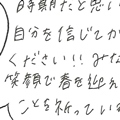 時期だと思い
自分を信じてが
ください!! みな
笑顔で春を迎え
ことを祈っている